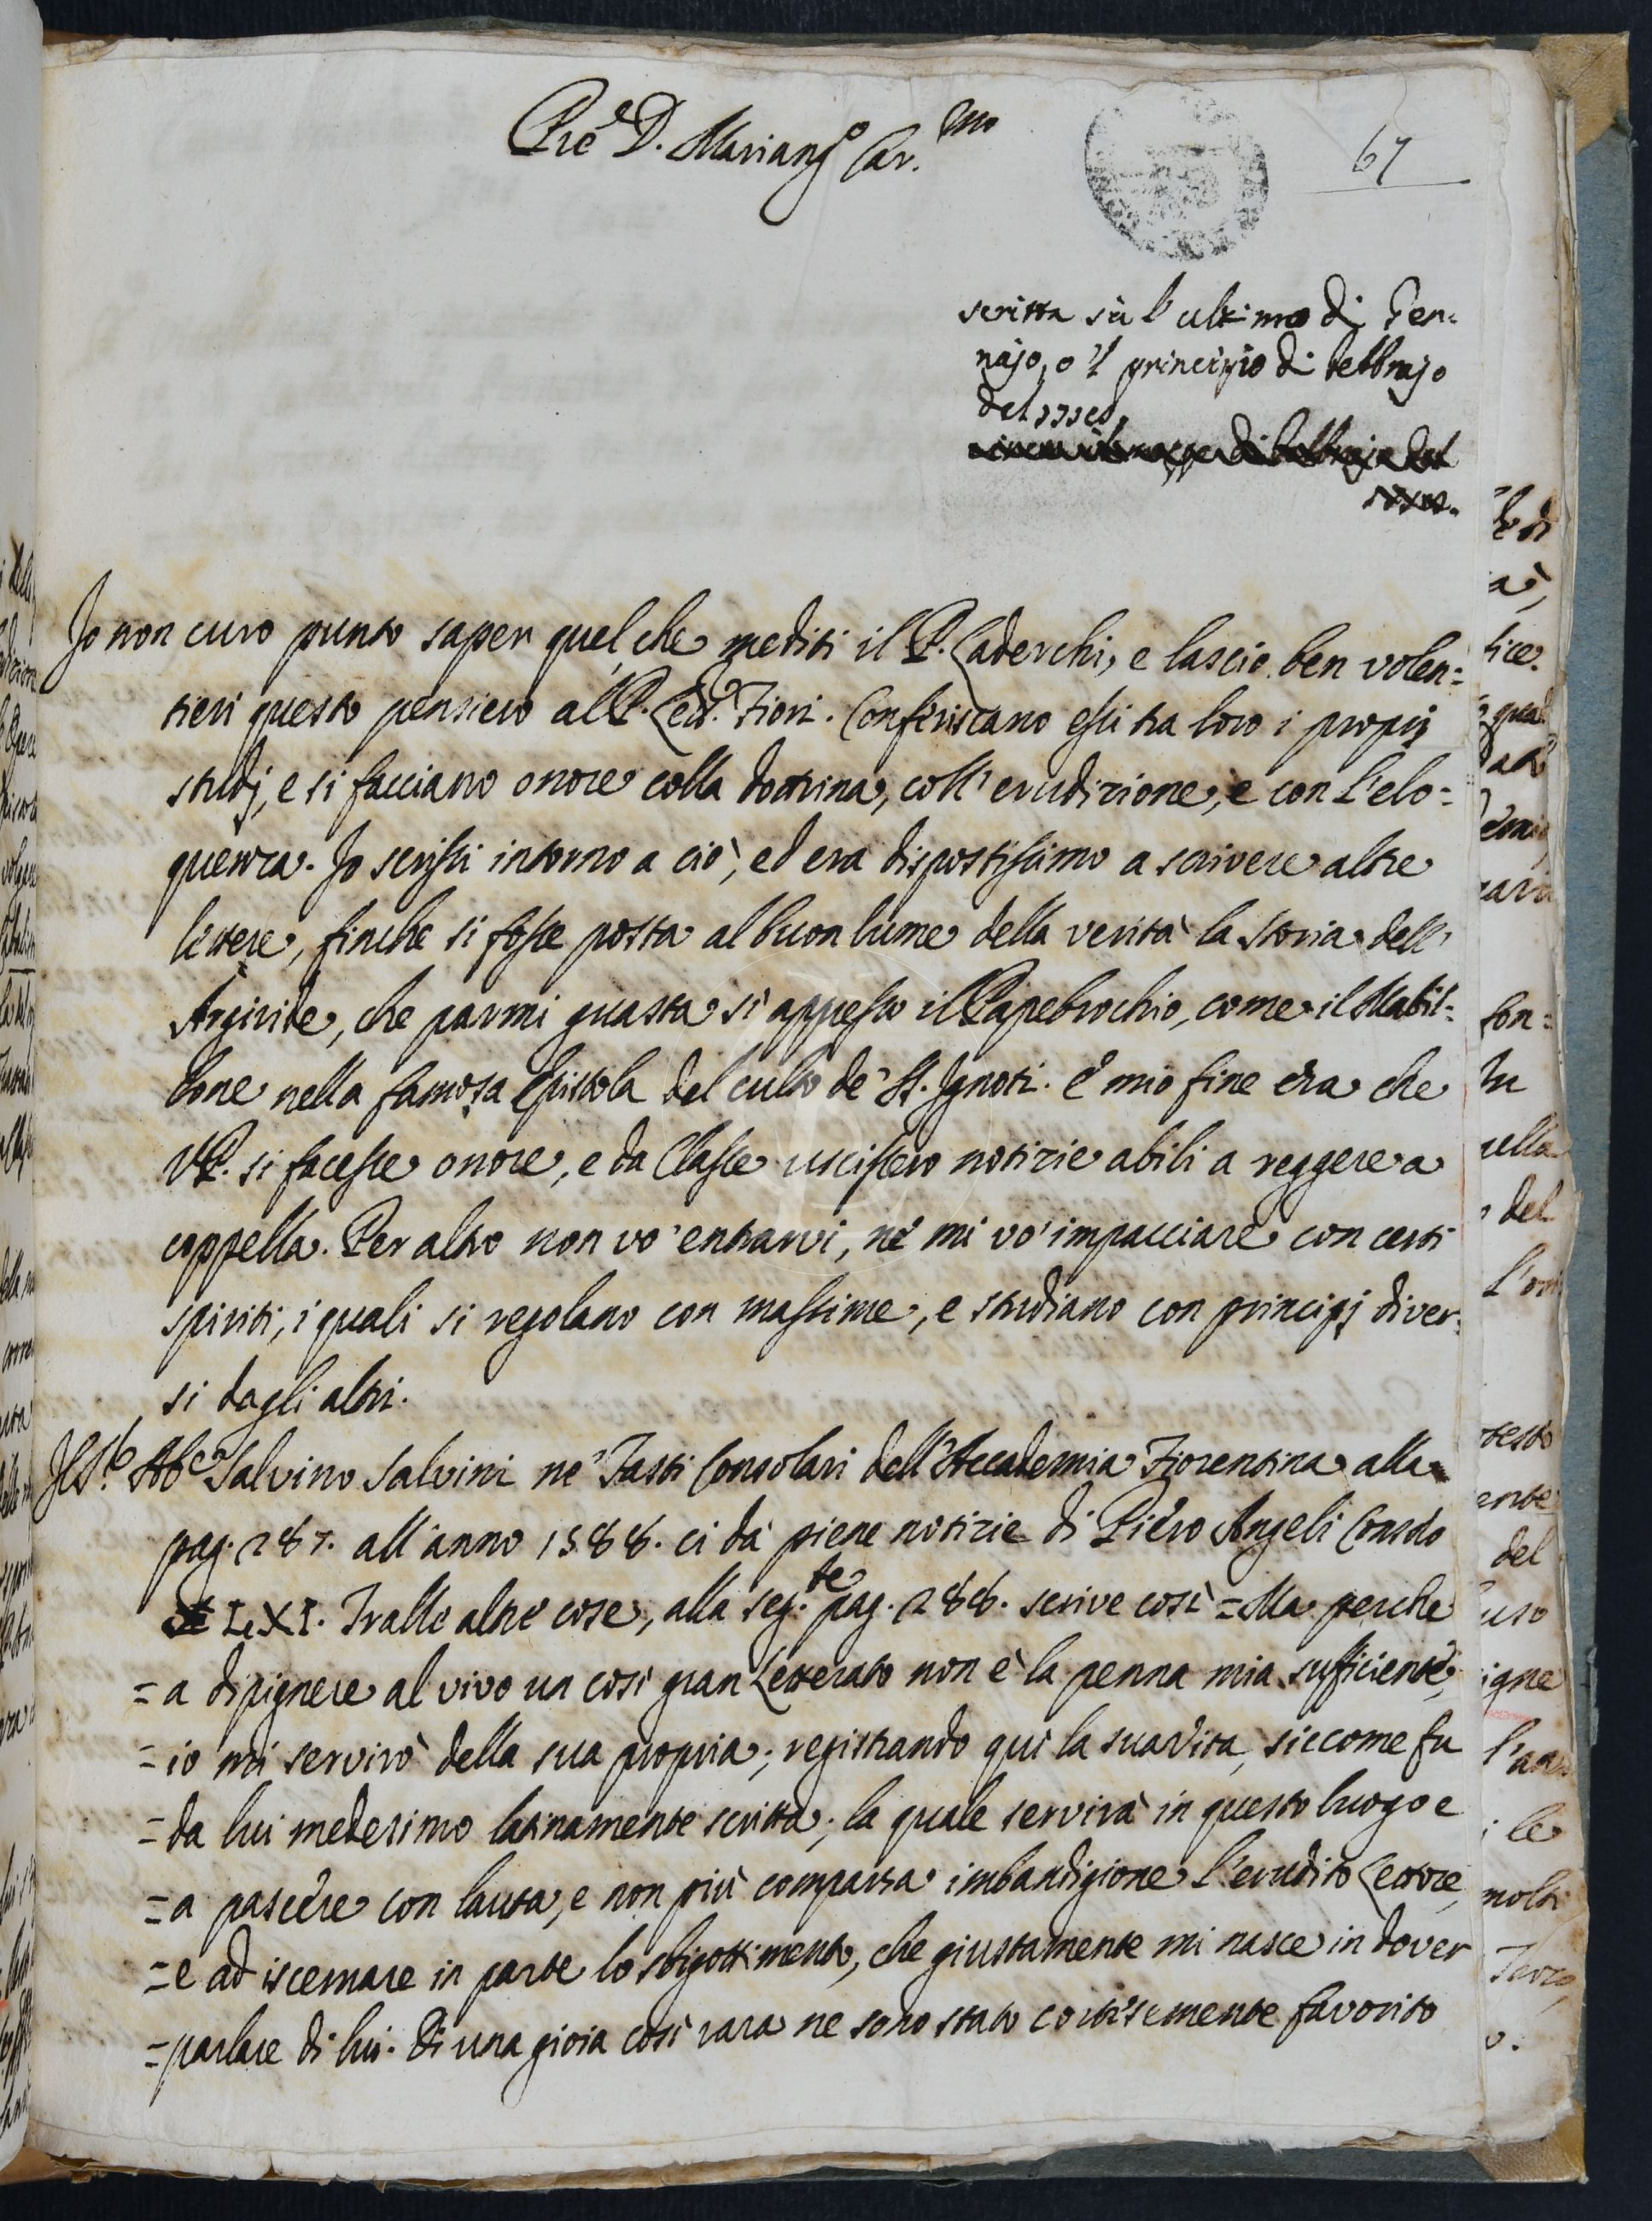 Pre D. Mariang.o Car.mo
67
scritta sù l'ultimo di Gen=
najo, o 'l principio di Febbrajo
del
Jo non curo punto saper quel che mediti il P. Laderchi, e lascio ben volen=
tieri questo pensiero al P. Fiori. Conferiscano essi tra loro i proprj
studj, e si facciano onore colla dottrina, coll'erudizione, e con l'elo=
quenza. Jo scrissi intorno a ciò, ed era dispostissimo a scrivere altre
lettere, finche si fosse posta al buon lume della verità la Storia dell'
Argiride, che parmi guasta sì appesso il Papebrochio, come il Mabil=
lone nella famosa Epistola del culto de' SS. Ignoti. E mio fine era che
V.P. si facesse onore, e da Classe uscissero notizie abili a reggere a
coppella. Per altro non vo' entrarvi, nè mi vo' impacciare con certi
spiriti, i quali si regolano con massime, e studiano con principj diver=
si dagli altri.
Il S.r Ab.e Salvino Salvini ne' Fasti Consolari dell'Accademia Fiorentina alla
pag. 287. all'anno 1588. ci dà piene notizie di Piero Angeli Consolo
LXI. Tralle altre cose, alla seg.te pag. 288. scrive così = Ma perche
= a dipignere al vivo un così gran Letterato non è la penna mia sufficiente,
= io mi servirò della sua propria; registrando qui la sua vita, siccome fu
= da lui medesimo latinamente scritta; la quale servirà in questo luogo e
= a pascere con lauta, e non più comparsa imbandigione l'erudito Lettore,
= e ad iscemare in parte lo sbigottimento, che giustamente mi nasce in dover
= parlare di lui. Di una gioia così rara ne sono stato cortesemente favorito